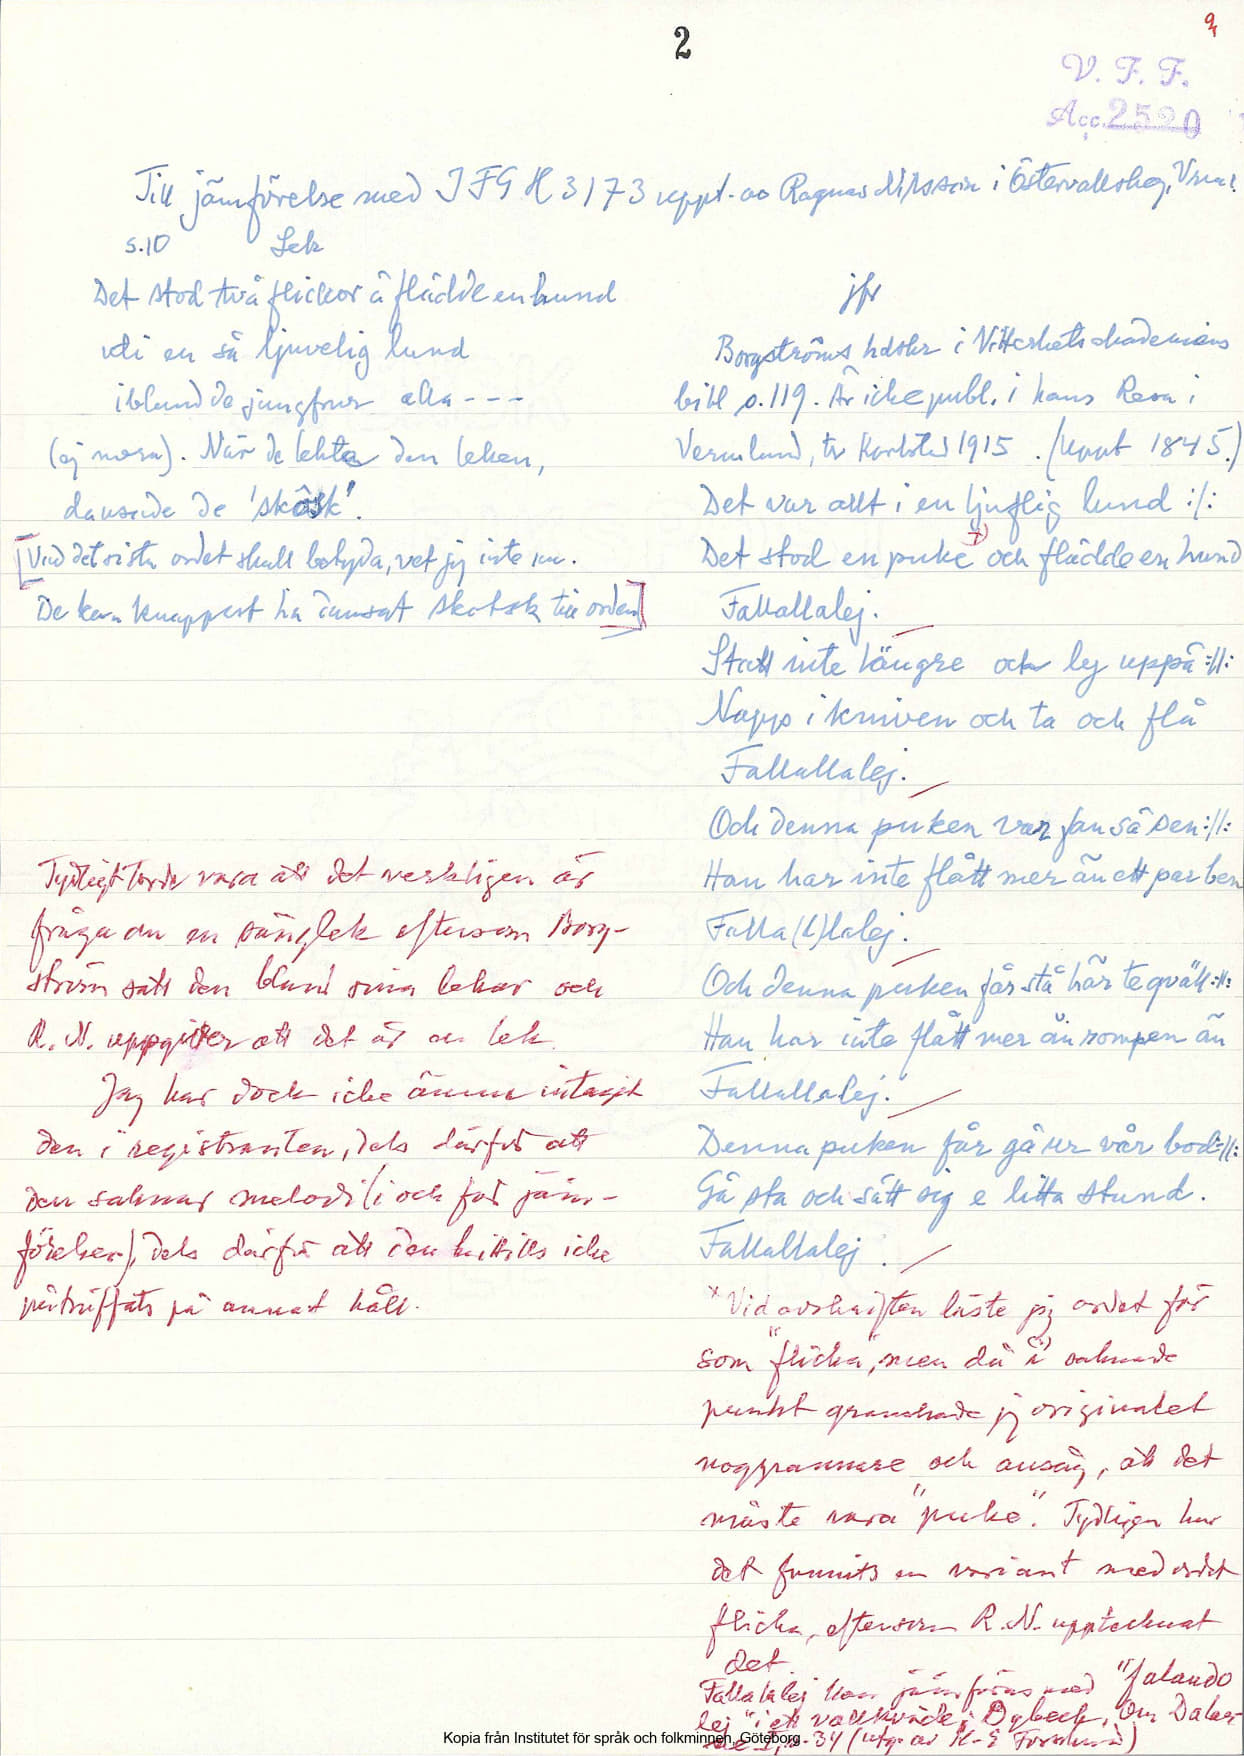 2
9
V. F. F.
Acc. 2520
Till jämförelse med IFG H 3173 uppt. av Ragnar Nilsson i Östervallskog, Vrml.
s.10 Lek
Det stod två flickor å flådde en hund
uti en så ljuvelig lund
ibland de jungfrur alla - - -
(ej mera). När de lekte den leken,
dansade de 'skåsk'.
[Vad det sista ordet skall betyda, vet jag inte
De kan knappast ha dansat skotsk till orden]
Tydligt torde vara att det verkligen är
fråga om en sånglek eftersom Borg-
ström satt den bland sina lekar och
R. N. uppgifver att det är en lek.
Jag har dock icke ännu intagit
den i registranten, dels därför att
den saknar melodi (i och för jäm-
förelser), dels därför att den hittills icke
påträffats på annat håll.
jfr
Borgströms hdskr i Vitterhetsakademiens
bibl s.119. Är icke publ. i hans Resa i
Vermland, tr Karlstad 1915. (Uppt 1845.)
Det var allt i en ljuflig lund :/:
Det stod en puke x) och flådde en hund
Fallallalej.
Statt inte längre och lej uppå :||:
Napp i kniven och ta och flå
Fallallalej.
Och denna puken var fan så sen :||:
Han har inte flått mer än ett par ben
Falla(l)lalej.
Och denna puken får stå här te qväll :||:
Han har inte flått mer än rompen än
Fallallalej.
Denna puken får gå ur vår bod :||:
Gå sta och sätt sig e litta stund.
Fallallalej.
x Vid avskriften läste jag ordet för
som "flicka", men då i saknade
punkt granskade jag originalet
noggrannare och ansåg, att det
måste vara "puke". Tydligen har
det funnits en variant med ordet
flicka, eftersom R. N. upptecknat
det.
Fallalalej kan jämföras med "falando
lej" i ett vallkväde i Dybeck, Om Dalar-
s. 34 (utg. av K-E Forslund)
Kopia från Institutet för språk och folkminnen, Göteborg